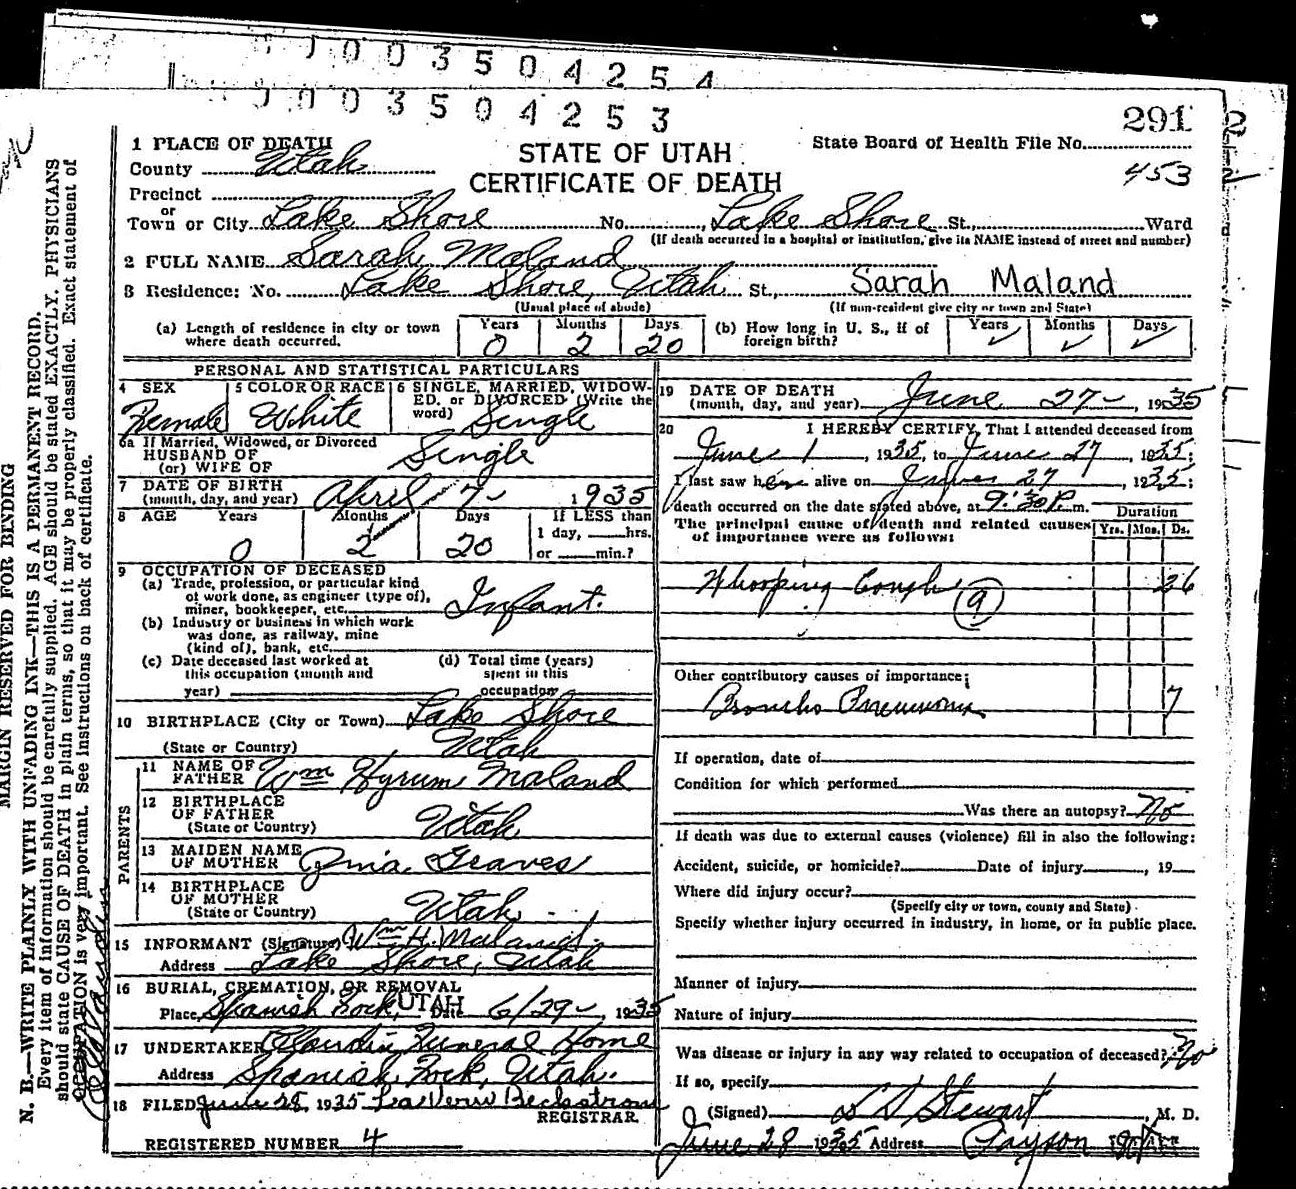 0003504254
0003504253
291 2
1 PLACE OF DEATH
STATE OF UTAH
CERTIFICATE OF DEATH
State Board of Health File No.
453
County Utah
Precinct
or
Town or City Lake Shore No. Lake Shore St., Ward
(If death occurred in a hospital or institution, give its NAME instead of street and number)
2 FULL NAME Sarah Maland
3 Residence: No. Lake Shore, Utah St., Sarah Maland
(Usual place of abode) (If non-resident give city or town and State)
(a) Length of residence in city or town where death occurred. Years 0 Months 2 Days 20
(b) How long in U. S., if of foreign birth? Years Months Days
PERSONAL AND STATISTICAL PARTICULARS
4 SEX Female
5 COLOR OR RACE White
6 SINGLE, MARRIED, WIDOW-
ED. or DIVORCED (Write the
word) Single
6a If Married, Widowed, or Divorced
HUSBAND OF
(or) WIFE OF Single
7 DATE OF BIRTH
(month, day, and year) April 7- 1935
8 AGE Years Months Days If LESS than
1 day, hrs.
0 2 20 or min.?
9 OCCUPATION OF DECEASED
(a) Trade, profession, or particular kind
of work done, as engineer (type of),
miner, bookkeeper, etc. Infant.
(b) Industry or business in which work
was done, as railway, mine
(kind of), bank, etc.
(c) Date deceased last worked at
this occupation (month and
year)
(d) Total time (years)
spent in this
occupation
10 BIRTHPLACE (City or Town) Lake Shore
(State or Country) Utah
PARENTS
11 NAME OF
FATHER Wm Hyrum Maland
12 BIRTHPLACE
OF FATHER
(State or Country) Utah
13 MAIDEN NAME
OF MOTHER Graves
14 BIRTHPLACE
OF MOTHER
(State or Country) Utah
15 INFORMANT (Signature) Wm H. Maland
Address Lake Shore, Utah
16 BURIAL, CREMATION, OR REMOVAL
Place Spanish Fork, UTAH Date 6/29-, 1935
17 UNDERTAKER Claudin Funeral Home
Address Spanish Fork, Utah.
18 FILED June 28 1935 LaVern Beckstrom
REGISTRAR
REGISTERED NUMBER 4
19 DATE OF DEATH
(month, day, and year) June 27-, 1935
20 I HEREBY CERTIFY, That I attended deceased from
June 1, 1935, to June 27, 1935;
I last saw her alive on June 27, 1935;
death occurred on the date stated above, at 9:30 P.m.
The principal cause of death and related causes
of importance were as follows:
Duration
Yrs. Mos. Ds.
Whooping Cough 26
9
Other contributory causes of importance:
Broncho Pneumonia 7
If operation, date of
Condition for which performed
Was there an autopsy? No
If death was due to external causes (violence) fill in also the following:
Accident, suicide, or homicide? Date of injury, 19
Where did injury occur?
(Specify city or town, county and State)
Specify whether injury occurred in industry, in home, or in public place.
Manner of injury
Nature of injury
Was disease or injury in any way related to occupation of deceased? No
If so, specify
(Signed) Stewart, M. D.
June 28 1935 Address Payson
MARGIN RESERVED FOR BINDING
N. B.—WRITE PLAINLY WITH UNFADING INK—THIS IS A PERMANENT RECORD.
Every item of information should be carefully supplied. AGE should be stated EXACTLY. PHYSICIANS
should state CAUSE OF DEATH in plain terms, so that it may be properly classified. Exact statement of
OCCUPATION is very important. See instructions on back of certificate.